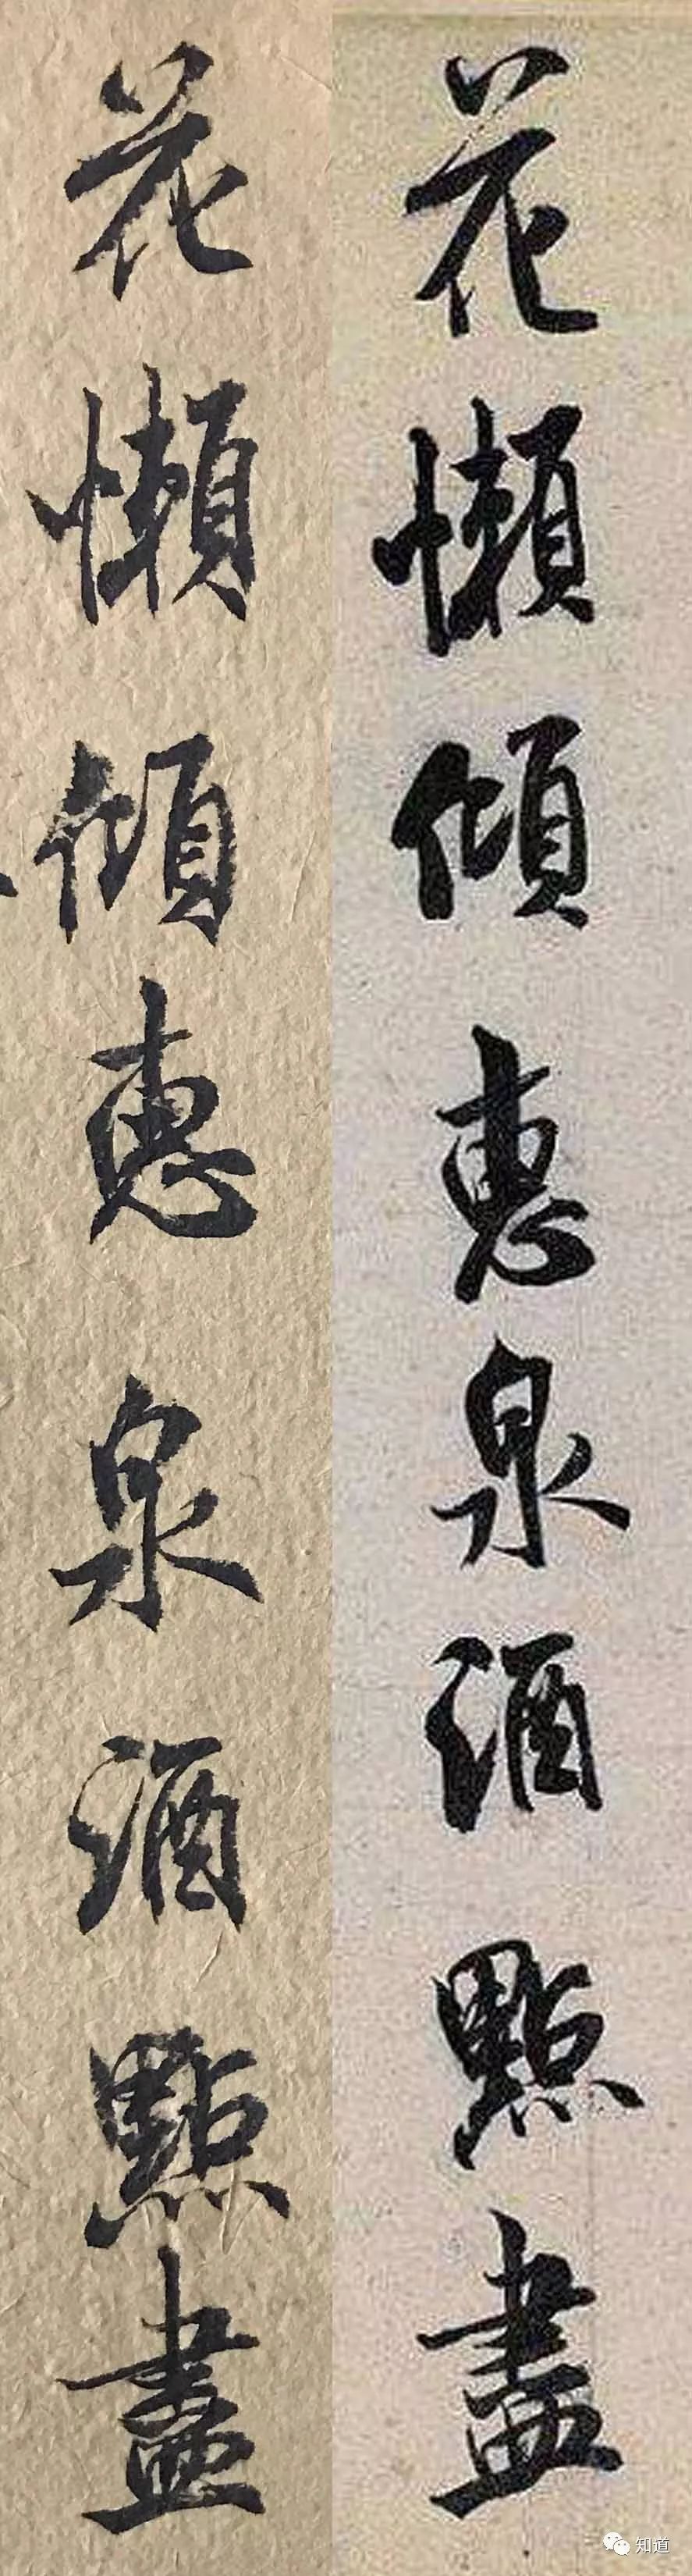 花懶傾惠泉酒點盡
花懶傾惠泉酒點盡
知道